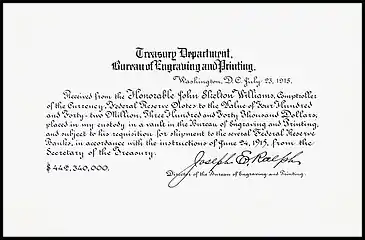 Treasury Department,
Bureau of Engraving and Printing,
Washington, D.C. July 23, 1915.
Received from the Honorable John Skelton Williams, Comptroller
of the Currency, Federal Reserve Notes to the Value of Four Hundred
and Forty-two Million, Three Hundred and Forty Thousand Dollars,
placed in my custody in a vault in the Bureau of Engraving and Printing,
and subject to his requisition for shipment to the several Federal Reserve
Banks, in accordance with the instructions of June 24, 1915, from the
Secretary of the Treasury.
Joseph E. Ralph
$ 442,340,000.
Director of the Bureau of Engraving and Printing.